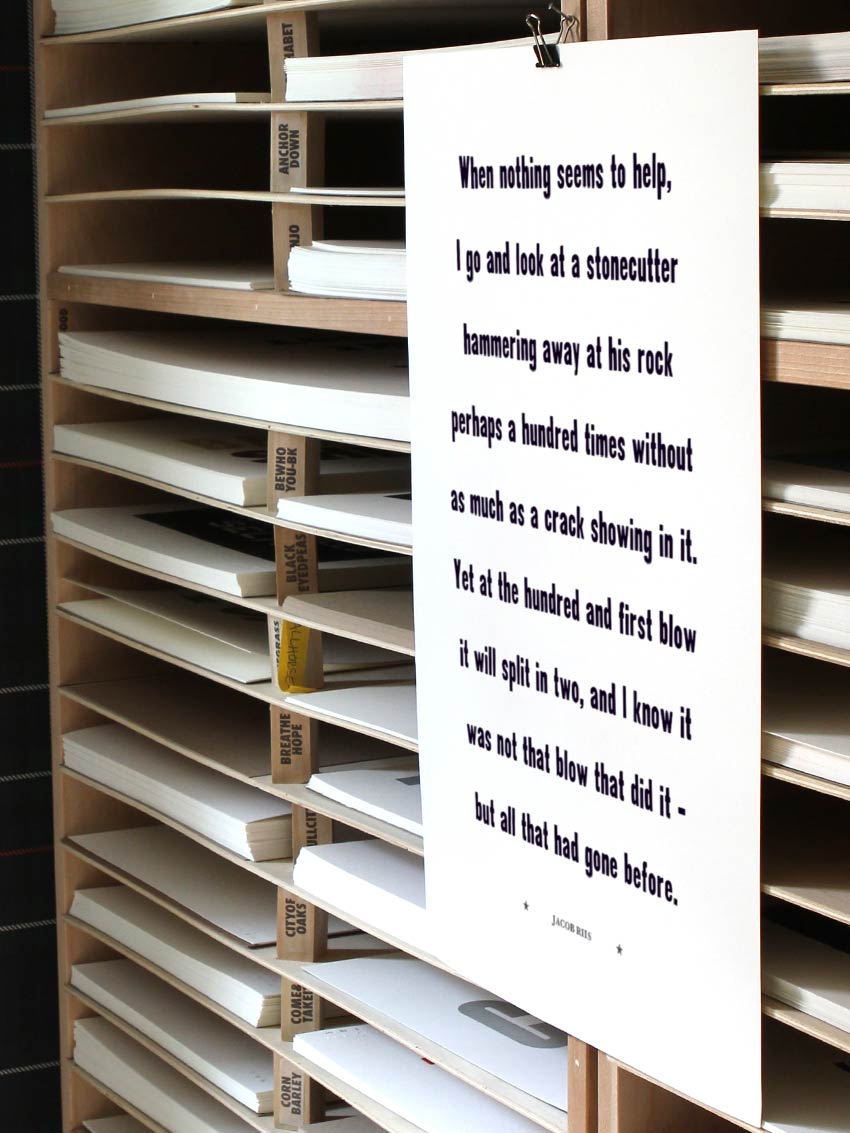 ANCHOR
DOWN
BEWHO
YOU-BK
BLACK
EYEDPEAS
BREATHE
HOPE
CITYOF
OAKS
COME&
TAKE
CORN
BARLEY
When nothing seems to help,
I go and look at a stonecutter
hammering away at his rock
perhaps a hundred times without
as much as a crack showing in it.
Yet at the hundred and first blow
it will split in two, and I know it
was not that blow that did it -
but all that had gone before.
JACOB RIIS